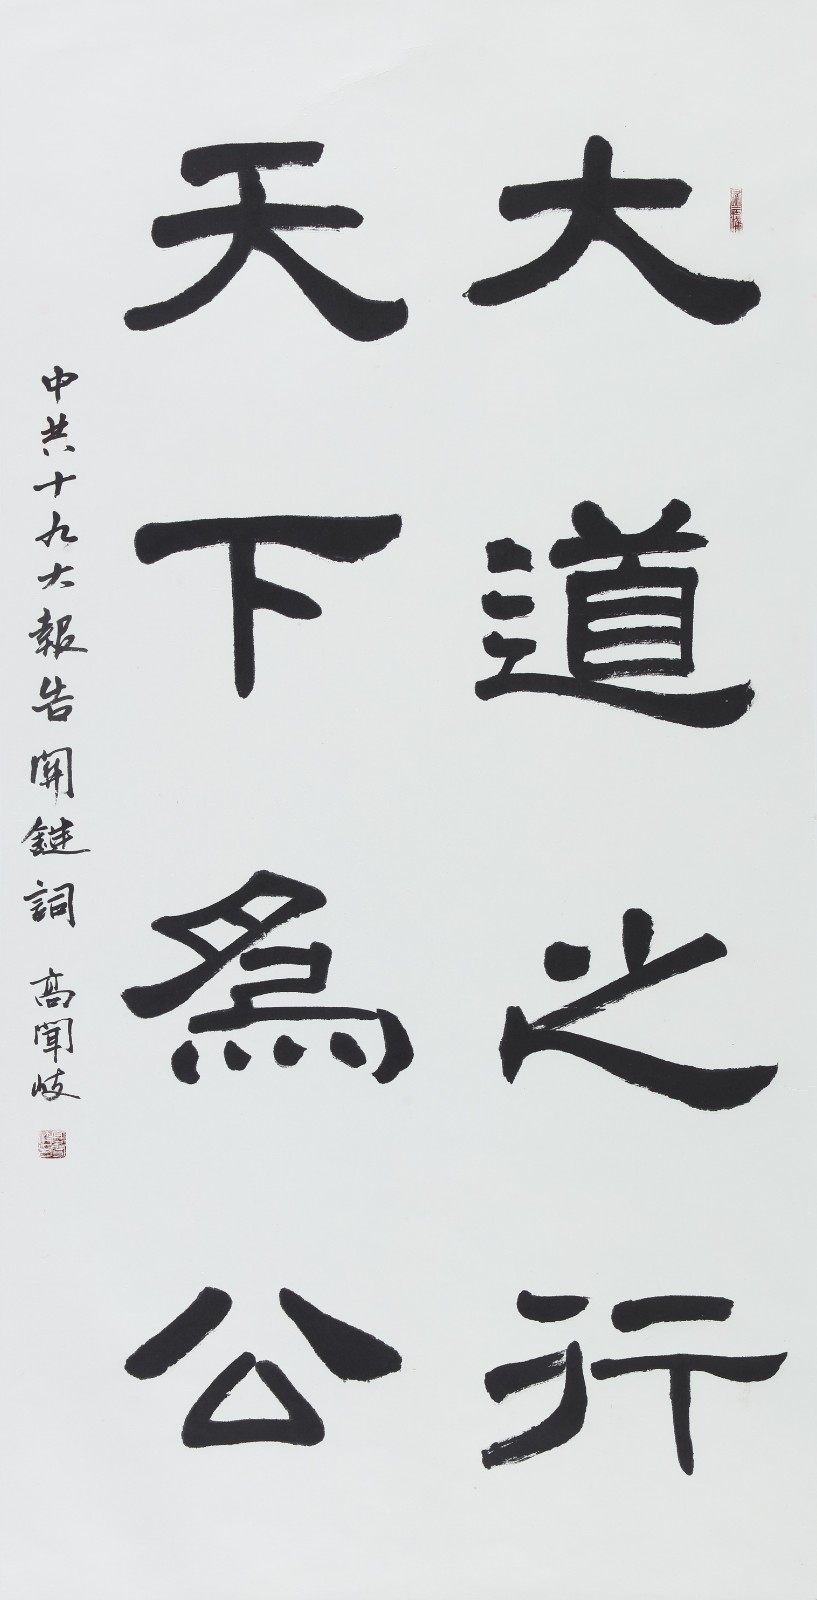 大道之行
天下為公
中共十九大報告關鍵詞 高聞岐